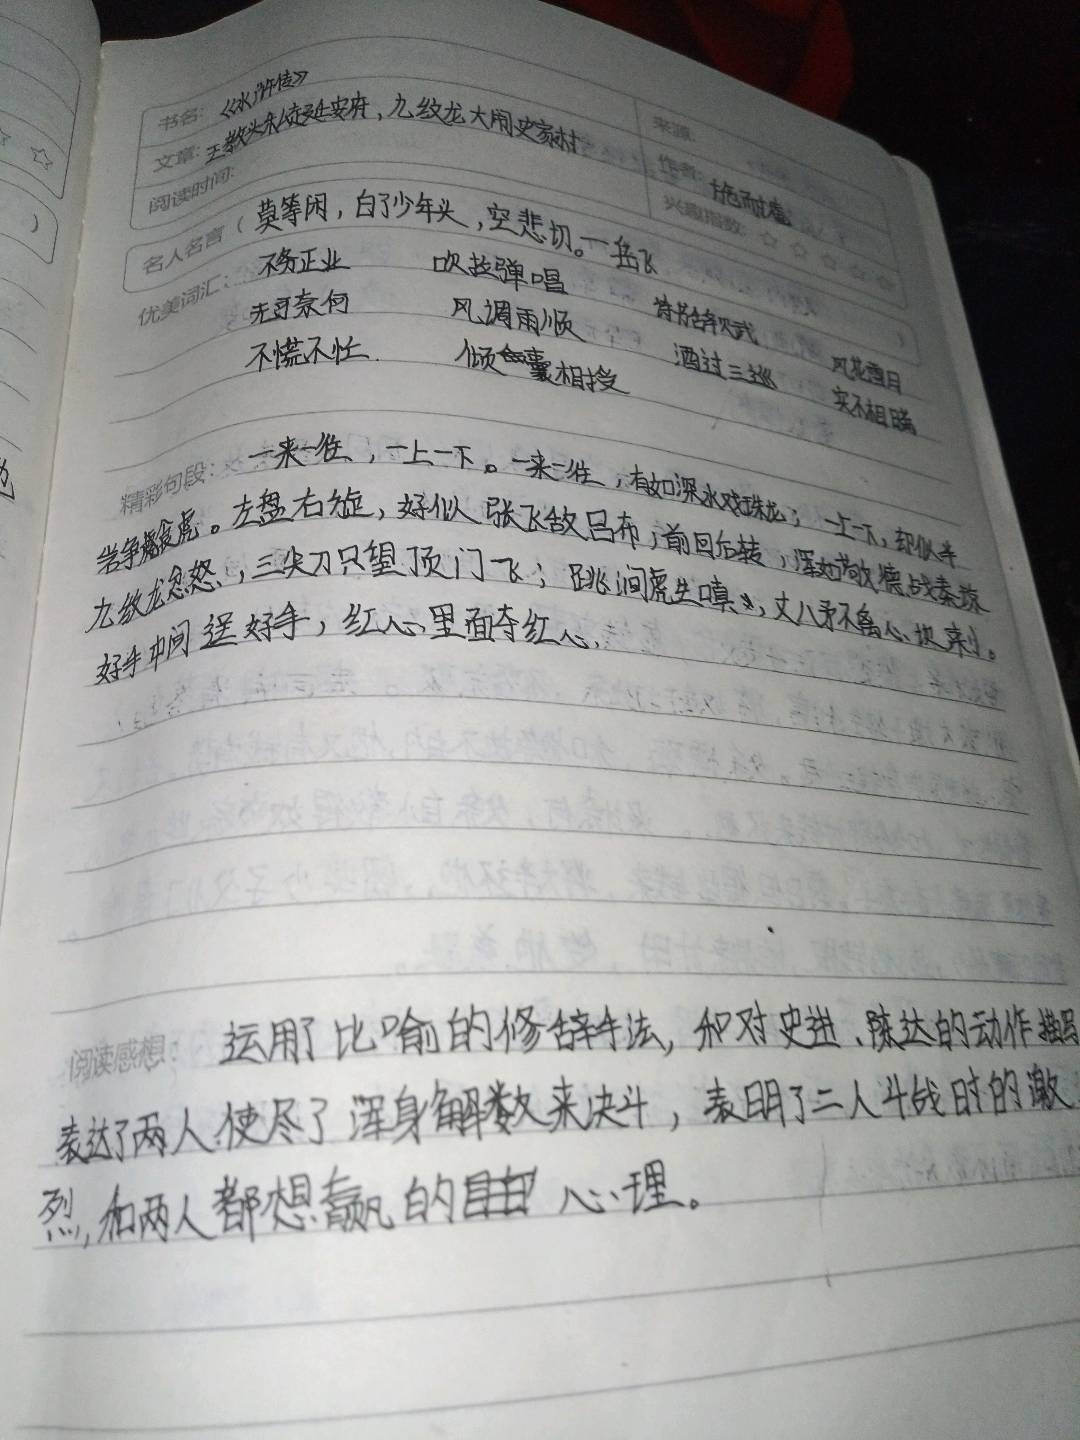 书名：《水浒传》
来源：
文章：王教头私走延安府，九纹龙大闹史家村
作者：施耐庵
阅读时间：
兴趣指数：☆☆☆☆☆
名人名言（莫等闲，白了少年头，空悲切。一岳飞
）
优美词汇：不务正业 吹拉弹唱 风花雪月
无可奈何 风调雨顺 酒过三巡 实不相瞒
不慌不忙 倾囊相授
精彩句段：一来一往，一上一下。一来一往，有如深水戏珠龙；一上一下，却似半
岩争食虎。左盘右旋，好似张飞敌吕布；前回后转，浑如敬德战秦琼
九纹龙忿怒，三尖刀只望顶门飞；跳涧虎生嗔，丈八矛不离心坎刺。
好手中间逞好手，红心里面夺红心，
阅读感想：运用了比喻的修辞手法，和对史进、陈达的动作描写
表达了两人使尽了浑身解数来决斗，表明了二人斗战时的激
烈，和两人都想赢的心理。